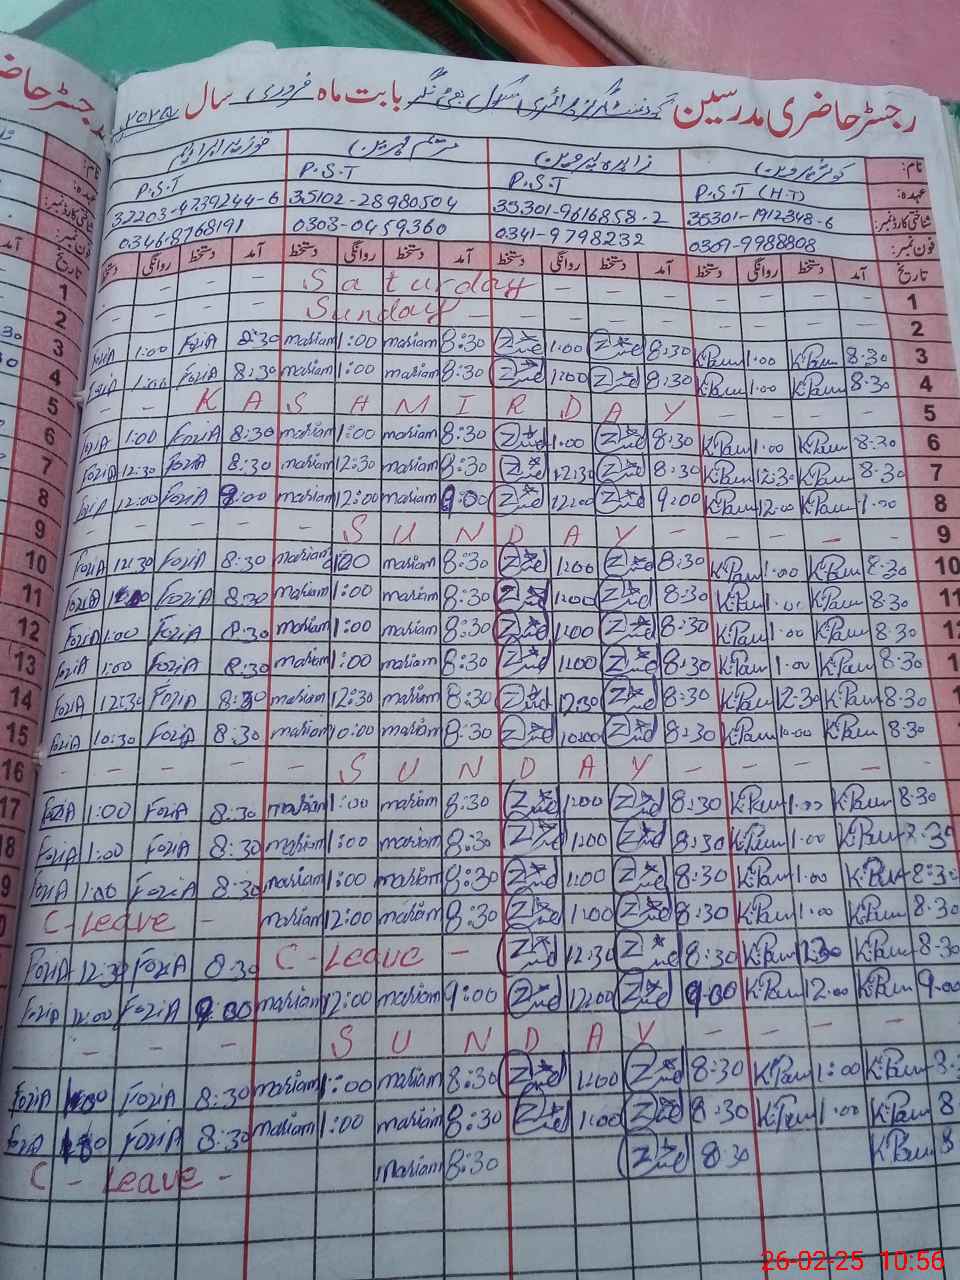 رجسٹر حاضری مدرسین گورنمنٹ گرلز پرائمری سکول بابت ماہ فروری سال
نام: کوثر پروین زاہدہ پروین مریم پروین فوزیہ ابراہیم
عہدہ: P.S.T (H.T) P.S.T P.S.T P.S.T
شناختی کارڈ نمبر: 35301-1912348-6 35301-9616858-2 35102-28980504 32203-4739244-6
فون نمبر: 0309-9988808 0341-9798232 0303-0459360 0346-8768191
تاریخ آمد دستخط روانگی دستخط آمد دستخط روانگی دستخط آمد دستخط روانگی دستخط آمد دستخط روانگی دستخط
1 - - - - Saturday - - - 1
2 - - - - Sunday - - - - 2
3 FoziA 1:00 FoziA 8:30 mariam 1:00 mariam 8:30 Zind 1:00 Zind 8:30 K.Parn 1:00 K.Parn 8:30 3
4 FoziA 1:00 FoziA 8:30 mariam 1:00 mariam 8:30 Zind 1:00 Zind 8:30 K.Parn 1:00 K.Parn 8:30 4
5 - - KASHMIR DAY - - - - 5
6 FoziA 1:00 FoziA 8:30 mariam 1:00 mariam 8:30 Zind 1:00 Zind 8:30 K.Parn 1:00 K.Parn 8:30 6
7 FoziA 12:30 FoziA 8:30 mariam 12:30 mariam 8:30 Zind 12:30 Zind 8:30 K.Parn 12:30 K.Parn 8:30 7
8 FoziA 12:00 FoziA 9:00 mariam 12:00 mariam 9:00 Zind 12:00 Zind 9:00 K.Parn 12:00 K.Parn 1:00 8
9 - - - - SUNDAY - - - - 9
10 FoziA 12:30 FoziA 8:30 mariam 1:00 mariam 8:30 Zind 1:00 Zind 8:30 K.Parn 1:00 K.Parn 8:30 10
11 FoziA FoziA 8:30 mariam 1:00 mariam 8:30 Zind 1:00 Zind 8:30 K.Parn 1:00 K.Parn 8:30 11
12 FoziA 1:00 FoziA 8:30 mariam 1:00 mariam 8:30 Zind 1:00 Zind 8:30 K.Parn 1:00 K.Parn 8:30 12
13 FoziA 1:00 FoziA 8:30 mariam 1:00 mariam 8:30 Zind 1:00 Zind 8:30 K.Parn 1:00 K.Parn 8:30 1
14 FoziA 12:30 FoziA 8:30 mariam 12:30 mariam 8:30 Zind 12:30 Zind 8:30 K.Parn 12:30 K.Parn 8:30 1
15 FoziA 10:30 FoziA 8:30 mariam 10:00 mariam 8:30 Zind 10:00 Zind 8:30 K.Parn 10:00 K.Parn 8:30
16 - - - - SUNDAY - - - -
17 FoziA 1:00 FoziA 8:30 mariam 1:00 mariam 8:30 Zind 1:00 Zind 8:30 K.Parn 1:00 K.Parn 8:30
18 FoziA 1:00 FoziA 8:30 mariam 1:00 mariam 8:30 Zind 1:00 Zind 8:30 K.Parn 1:00 K.Parn 8:30
9 FoziA 1:00 FoziA 8:30 mariam 1:00 mariam 8:30 Zind 1:00 Zind 8:30 K.Parn 1:00 K.Parn 8:30
C-Leave - mariam 12:00 mariam 8:30 Zind 1:00 Zind 8:30 K.Parn 1:00 K.Parn 8:30
FoziA 12:30 FoziA 8:30 C-Leave - Zind 12:30 Zind 8:30 K.Parn 12:30 K.Parn 8:30
FoziA 12:00 FoziA 9:00 mariam 12:00 mariam 9:00 Zind 12:00 Zind 9:00 K.Parn 12:00 K.Parn 9:00
- - - - SUNDAY - - - -
FoziA FoziA 8:30 mariam 1:00 mariam 8:30 Zind 1:00 Zind 8:30 K.Parn 1:00 K.Parn 8:
FoziA FoziA 8:30 mariam 1:00 mariam 8:30 Zind 1:00 Zind 8:30 K.Parn 1:00 K.Parn 8
C - Leave - mariam 8:30 Zind 8:30 K.Parn 8
26-02-25 10:56